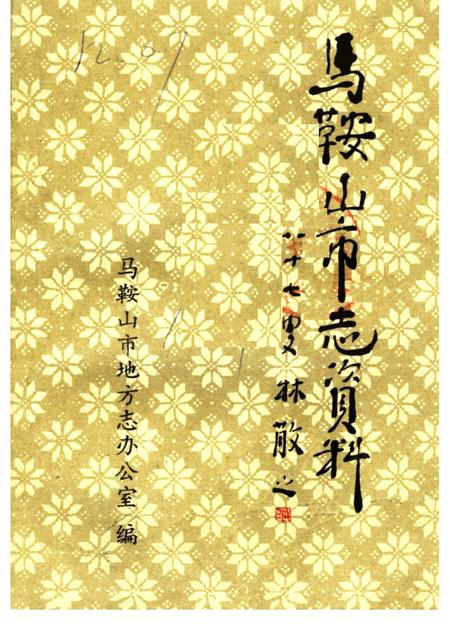 馬鞍山市志資料
八十七叟
林散之
马鞍山市地方志办公室 编